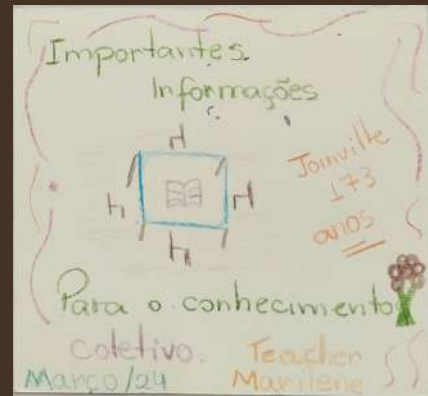 Importantes
Informações
Joinville
173
anos
Para o conhecimento
coletivo.
Teacher
Março/24
Marilene